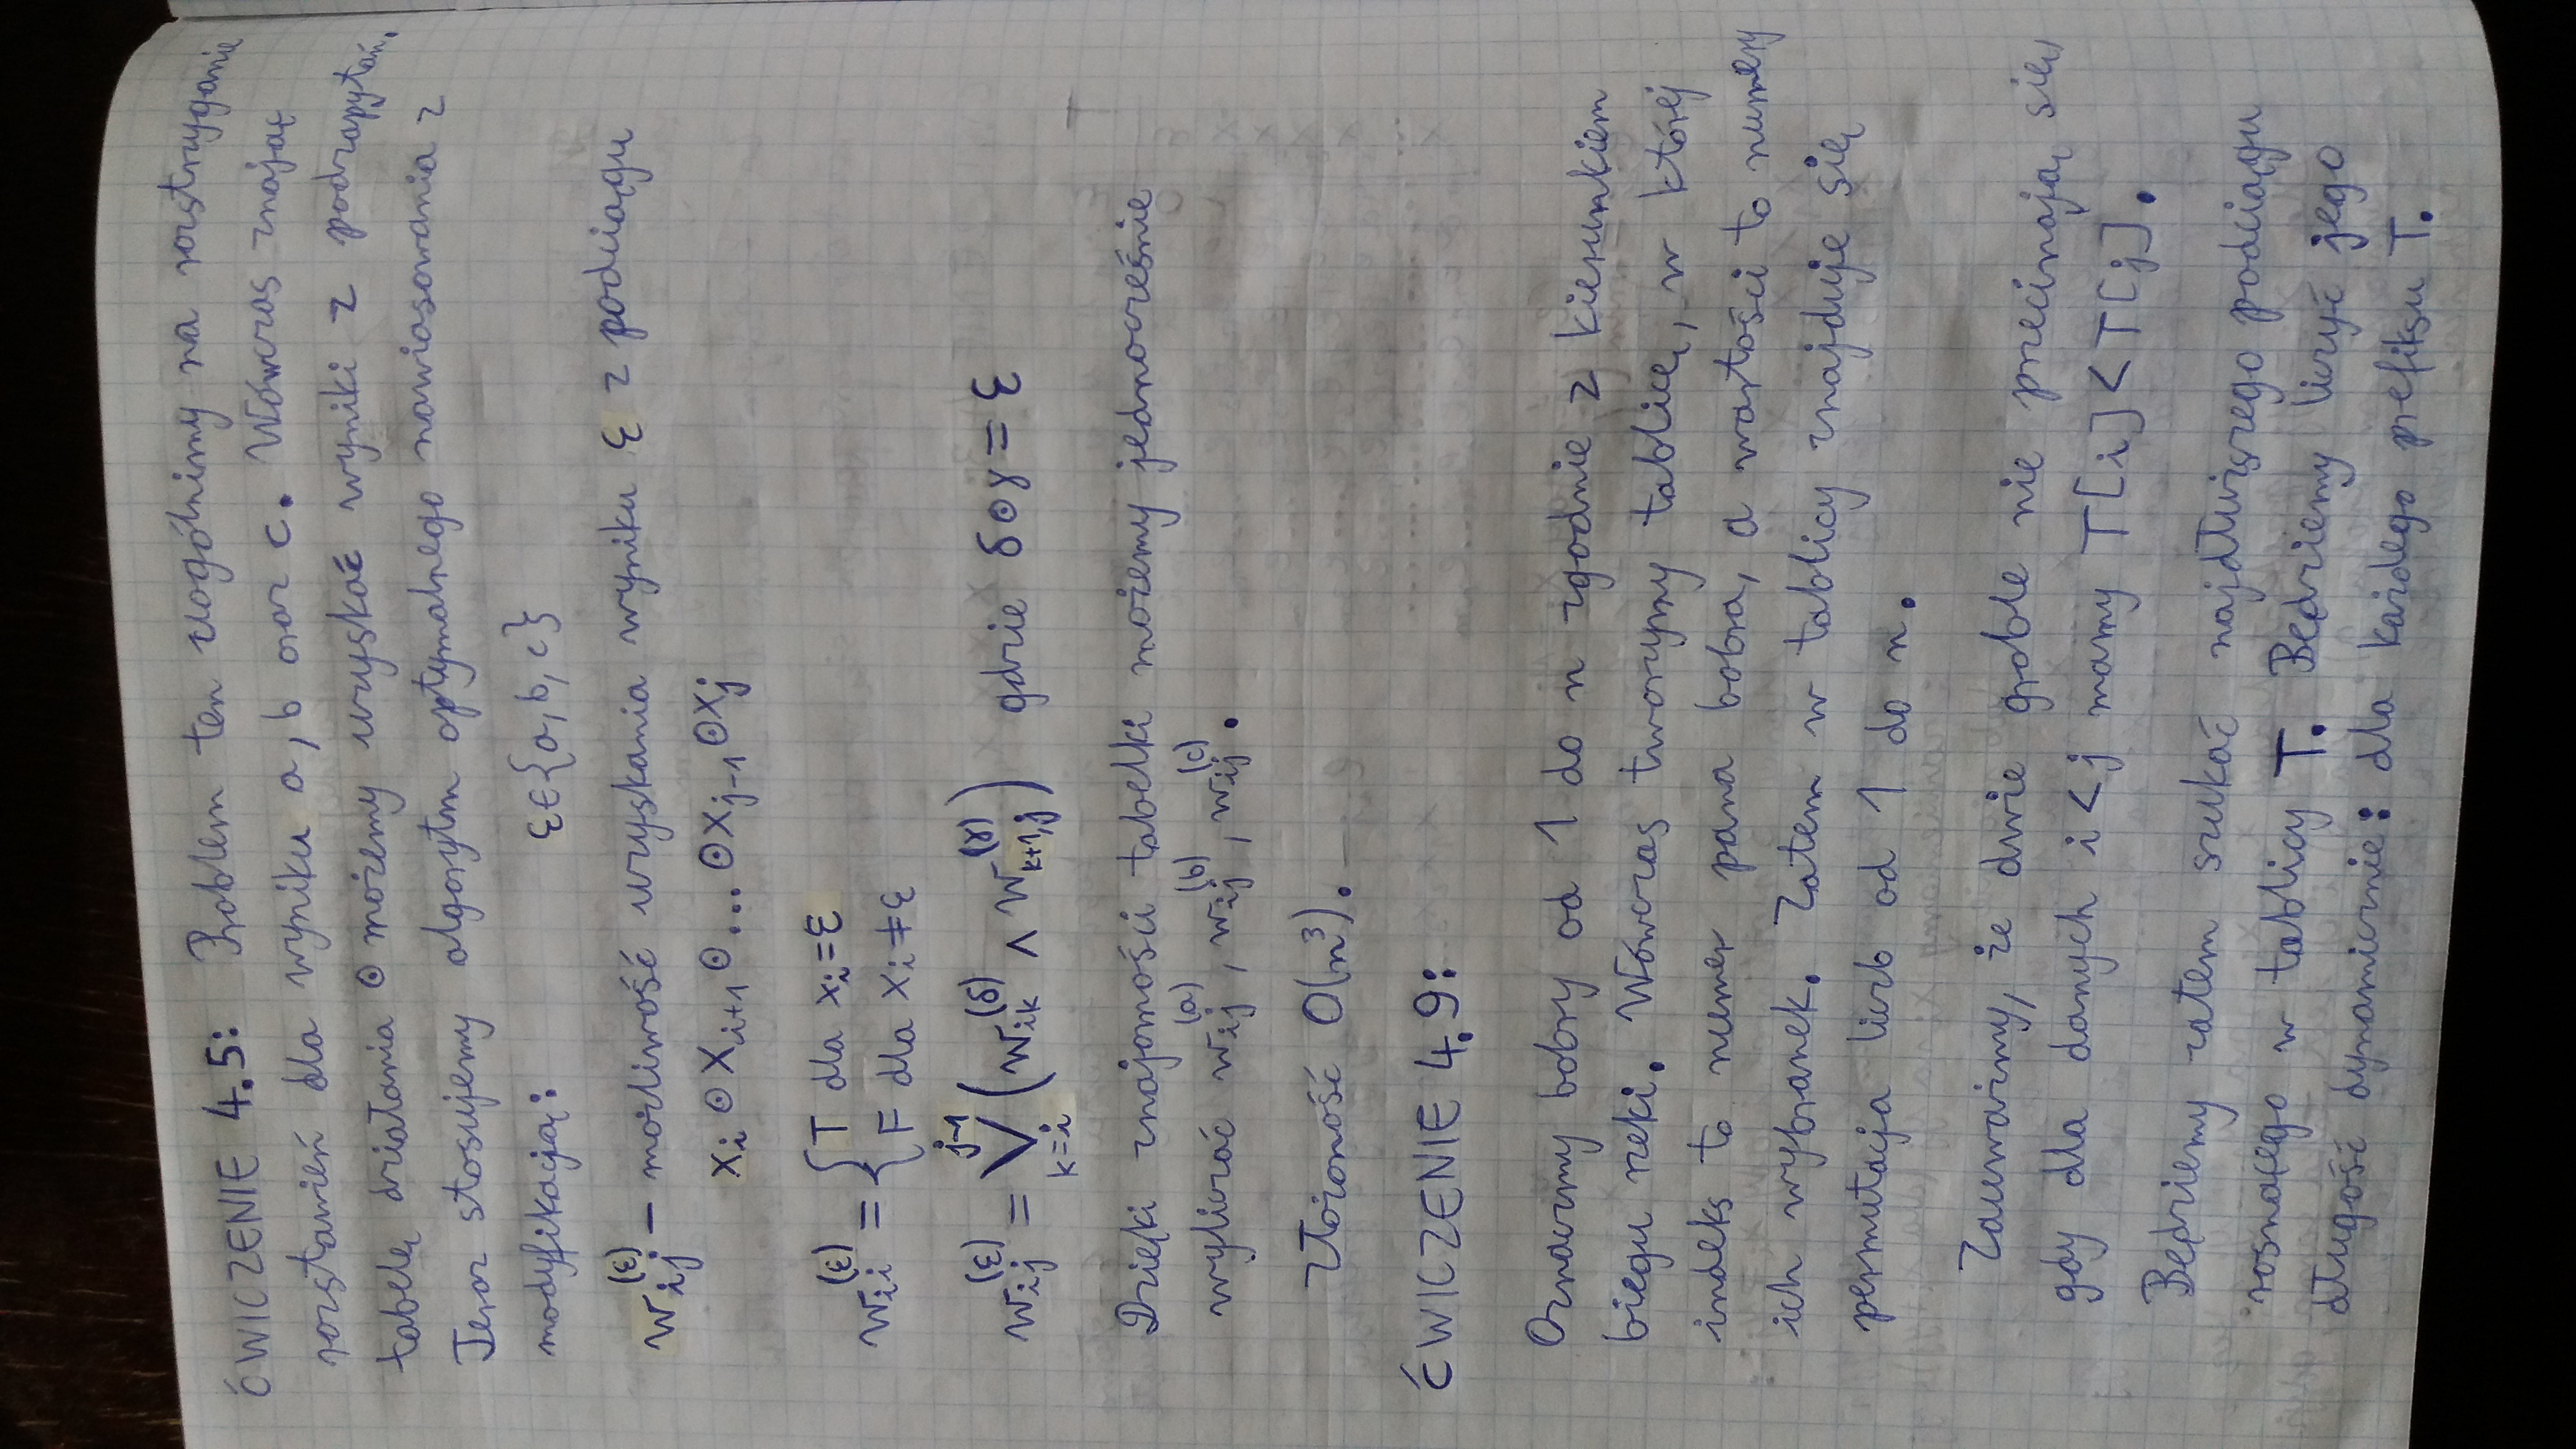 ĆWICZENIE 4.5: Problem ten uogólnimy na rozstrzyganie
rozstawień dla wyniku a, b oraz c. Wówczas znając
tabelę działania ⊙ możemy uzyskać wyniki z podzapytań.
Teraz stosujemy algorytm optymalnego nawiasowania z
modyfikacją: ε∈{a, b, c}
w_{ij}^{(ε)} – możliwość uzyskania wyniku ε z podciągu
x_i ⊙ x_{i+1} ⊙ ... ⊙ x_{j-1} ⊙ x_j
w_{ii}^{(ε)} = { T dla x_i = ε
F dla x_i ≠ ε
w_{ij}^{(ε)} = ⋁_{k=i}^{j-1} (w_{ik}^{(δ)} ∧ w_{k+1,j}^{(γ)}) gdzie δ⊙γ = ε
Dzięki znajomości tabelki możemy jednocześnie
wyliczać w_{ij}^{(a)}, w_{ij}^{(b)}, w_{ij}^{(c)}.
Złożoność O(n³).
ĆWICZENIE 4.9:
Oznaczmy bobry od 1 do n zgodnie z kierunkiem
biegu rzeki. Wówczas tworzymy tablicę, w której
indeks to numer pana bobra, a wartości to numery
ich wybranek. Zatem w tablicy znajduje się
permutacja liczb od 1 do n.
Zauważmy, że dwie groble nie przecinają się,
gdy dla danych i < j mamy T[i] < T[j].
Będziemy zatem szukać najdłuższego podciągu
rosnącego w tablicy T. Będziemy liczyć jego
długość dynamicznie: dla każdego prefiksu T.